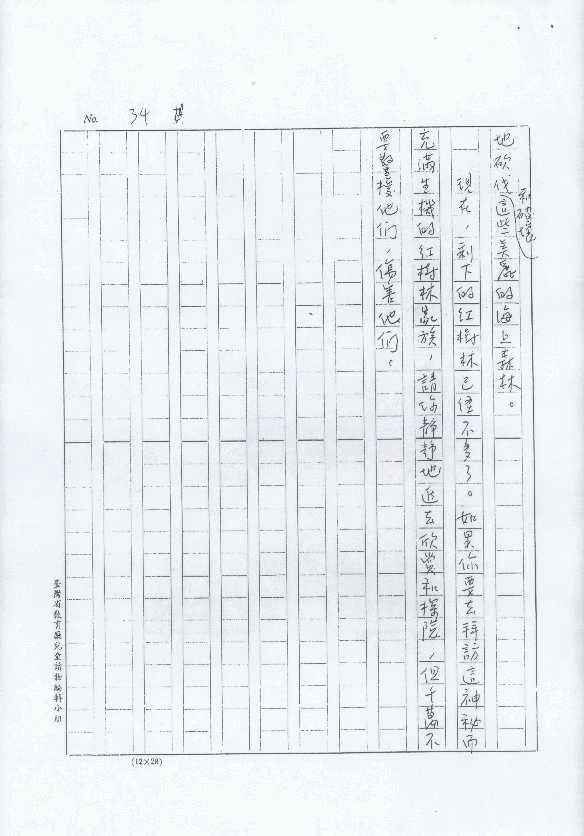 No. 34
地砍伐和破壞這些美麗的海上森林。
現在，剩下的紅樹林已經不多了。如果你要去拜訪這神秘而
充滿生機的紅樹林家族，請你靜靜地進去欣賞和探險，但千萬不
要驚擾他們，傷害他們。
臺灣省教育廳兒童讀物編輯小組
(12×28)